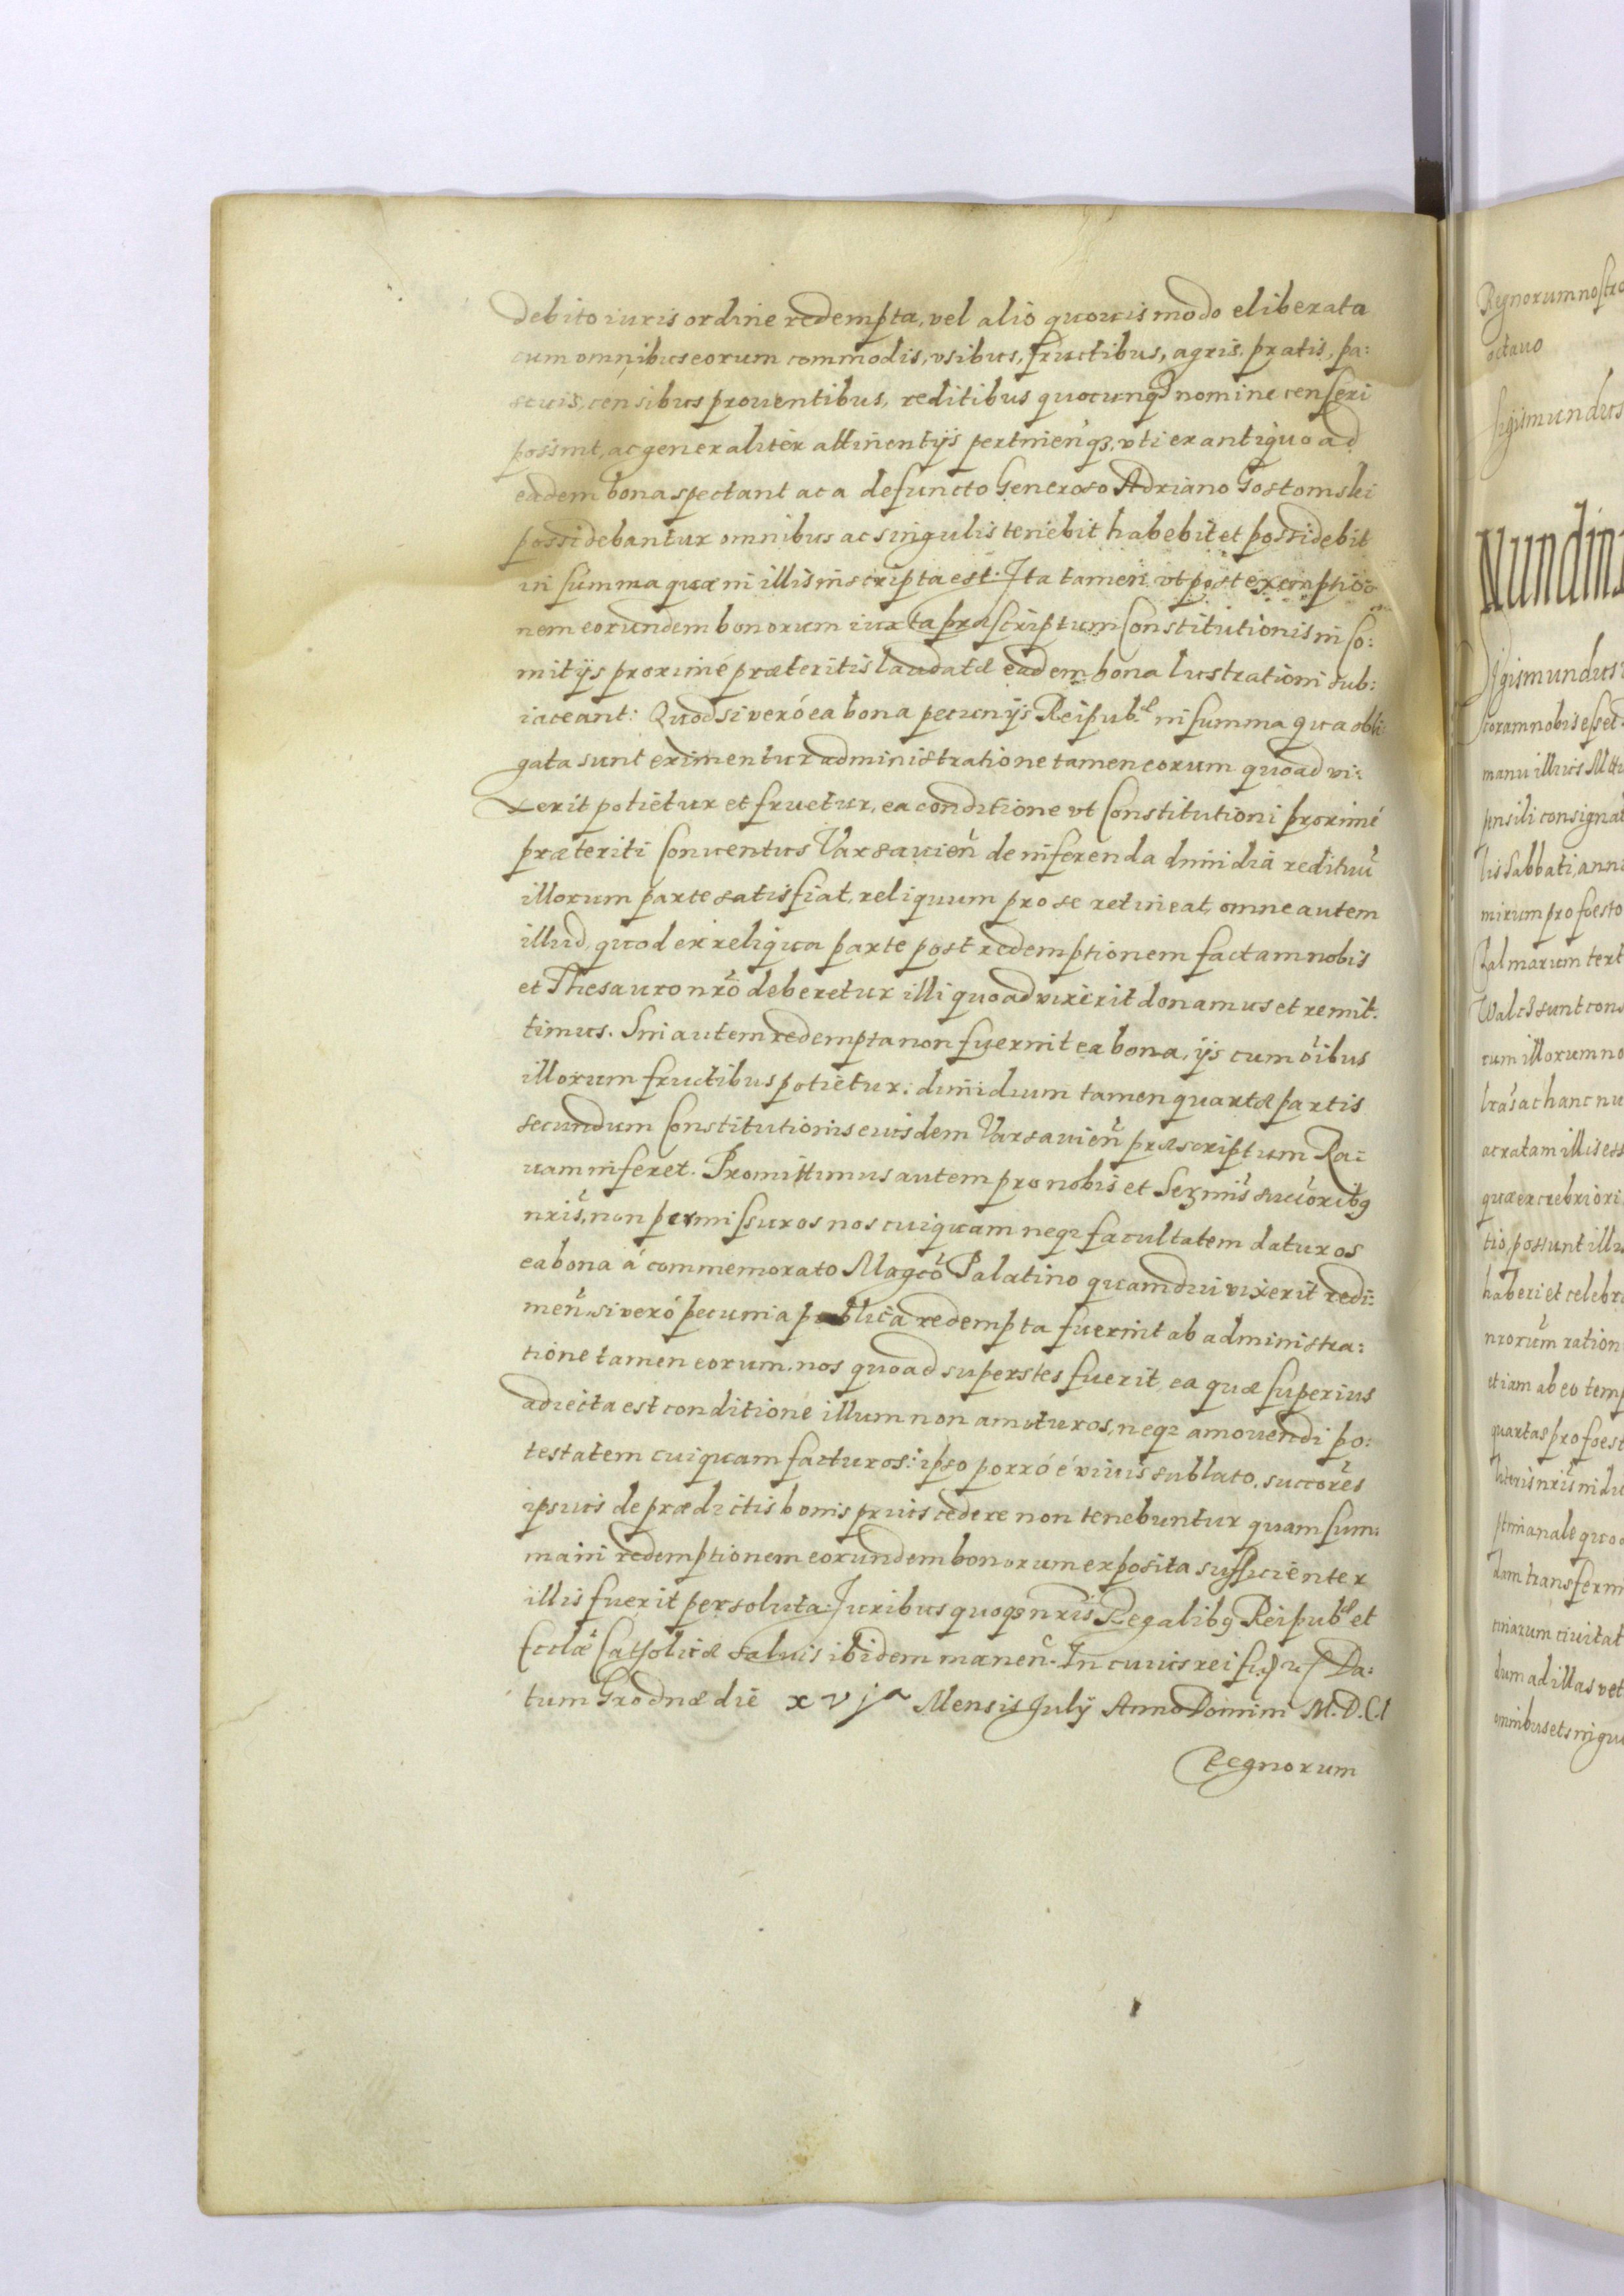 debito iuris ordine redempta, vel alio quouis modo eliberata
cum omnibus eorum commodis, vsibus, fructibus, agris, pratis, pa:
scuis, censibus prouentibus, reditibus quocunq nomine censeri
possint, ac generaliter attinentijs pertinen qz, vti ex antiquo ad
eadem bona spectant ac a defuncto Generoso Adriano Gostomski
possidebantur omnibus ac singulis tenebit habebit et possidebit
in summa quæ in illis inscripta est. Ita tamen vt post exemptio:
nem eorundem bonorum iuxta præscriptum Constitutionis in Co:
mitijs proximé præteritis laudatæ eadem bona lustrationi sub:
iaceant: Quod si veró ea bona pecunijs Reipub. in summa qua obli
gata sunt eximentur administratione tamen eorum quoad vi:
xerit potietur et fruetur, ea conditione vt Constitutioni proximé
præteriti Conuentus Varsauien de inferenda dimidia redituu
illorum parte satisfiat, reliquum pro se retineat, omne autem
illud, quod ex reliqua parte post redemptionem factam nobis
et Thesauro nro deberetur illi quoad vixerit donamus et remit:
timus. Sin autem redempta non fuerint ea bona, ijs cum oibus
illorum fructibus potietur: dimidium tamen quartæ partis
secundum Constitutionis eiusdem Varsauien præscriptum Ra:
uam inferet. Promittimus autem pro nobis et Sezmis succoribq
nris, non permissuros nos cuiquam neqz facultatem daturos
ea bona á commemorato Magco Palatino quamdiu vixerit redi:
men, si veró pecunia publica redempta fuerint ab administra:
tione tamen eorum nos quoad superstes fuerit, ea quæ superius
adiecta est conditione illum non amoturos, neqz amouendi po:
testatem cuiquam facturos: ipso porró é viuis sublato, succores
ipsius de prædictis bonis prius cedere non tenebuntur quam sum:
ma in redemptionem eorundem bonorum exposita sufficienter
illis fuerit persoluta: Iuribus quoqz nris Regalibq Reipub et
Ecclæ Catholicæ saluis ibidem manen. In cuius rei Da:
tum Grodnæ die xvja Mensis Iulij Anno Domini M.D.CI
Regnorum
Regnorum nostro
octauo
Sigismundus
Nundin
Sigismundus
coram nobis esset
manu illius
pensili consignat
lis Sabbati, anno
mirum pro foesto
Palmarum tert
sunt cons
cum illorum no
lras ac hanc nu
ac ratam illis ess
quæ ex crebriori
tio, possunt illu
haberi et celebra
nrorum ration
etiam ab eo temp
quartas pro foest
literis nris
quod
dam transferri
ciuitat
dum ad illas vet
omnibus et singu